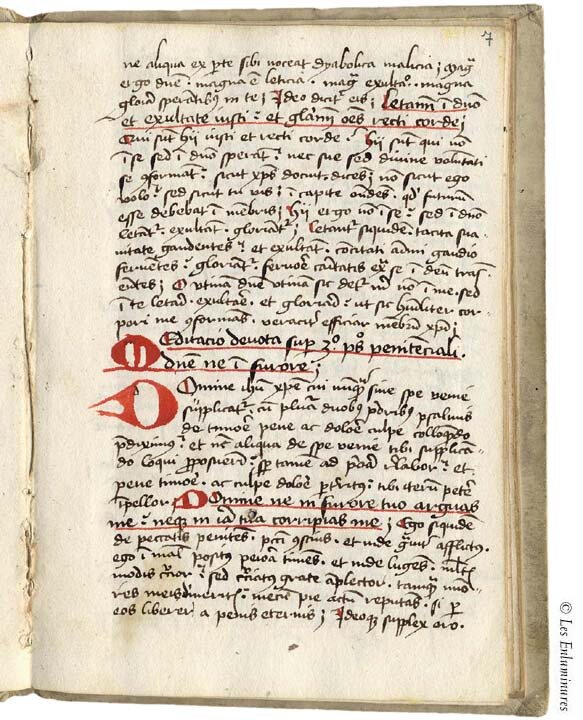 7
ne aliqua ex pte sibi noceat dyabolica malicia ; Mag
ergo dne . magna e leticia . mag exultao . magna
gloria sperantibus in te ; Ideo dicat eis ; Letam i dno
et exultate iusti : et glamı oes recti corde ;
Qui sunt hij iusti et recti corde . Hij sunt qui no
i se sed i dno sperat : nec sue sed divine voluntati
se 9format : sicut xps docuit dices ; no sicut ego
volo : sed sicut tu vis ; i capite ondes . qd futurum
esse debebat i membris ; Hij ergo no i se : sed i dno
letat . exultat . gloriat ; Letant siquidem tacita sua
vitate gaudentes : et exultat . gaudio
ferventes : gloriat . fervore caritatis ex se i deu tras
entes ; O utinam dne utina sic no i me . sed
i te leta . exultare . et gloria : ut sic humiliter cor
pori me 9formans . veraciter efficiar membru xpi ;
Meditacio devota sup 3o ps penitenciali .
dne ne i furore ;
Domine ihu xpe cui nuq sine spe venie
supplicat . cu pluia duobus pdribus psalmis
de timore pene ac dolore culpe
pdiximus : et nc aliqua de spe venie tibi supplica
do loqui pposueri : tamen ad labor : et
pene timore . ac culpe dolore : tibi iteru petere
ipellor . Domine ne in furore tuo arguas
me : neq in ira tua corripias me ; Ego siquide
de peccatis penites . 9scius . et inde afflictus .
ego i mal positus times . et inde luges .
modis : sed grate aplector . tamq
res : pie actu reputas . si p
eos liberer a penis eternis ; Ideoq supplex oro .
© Les Enluminures